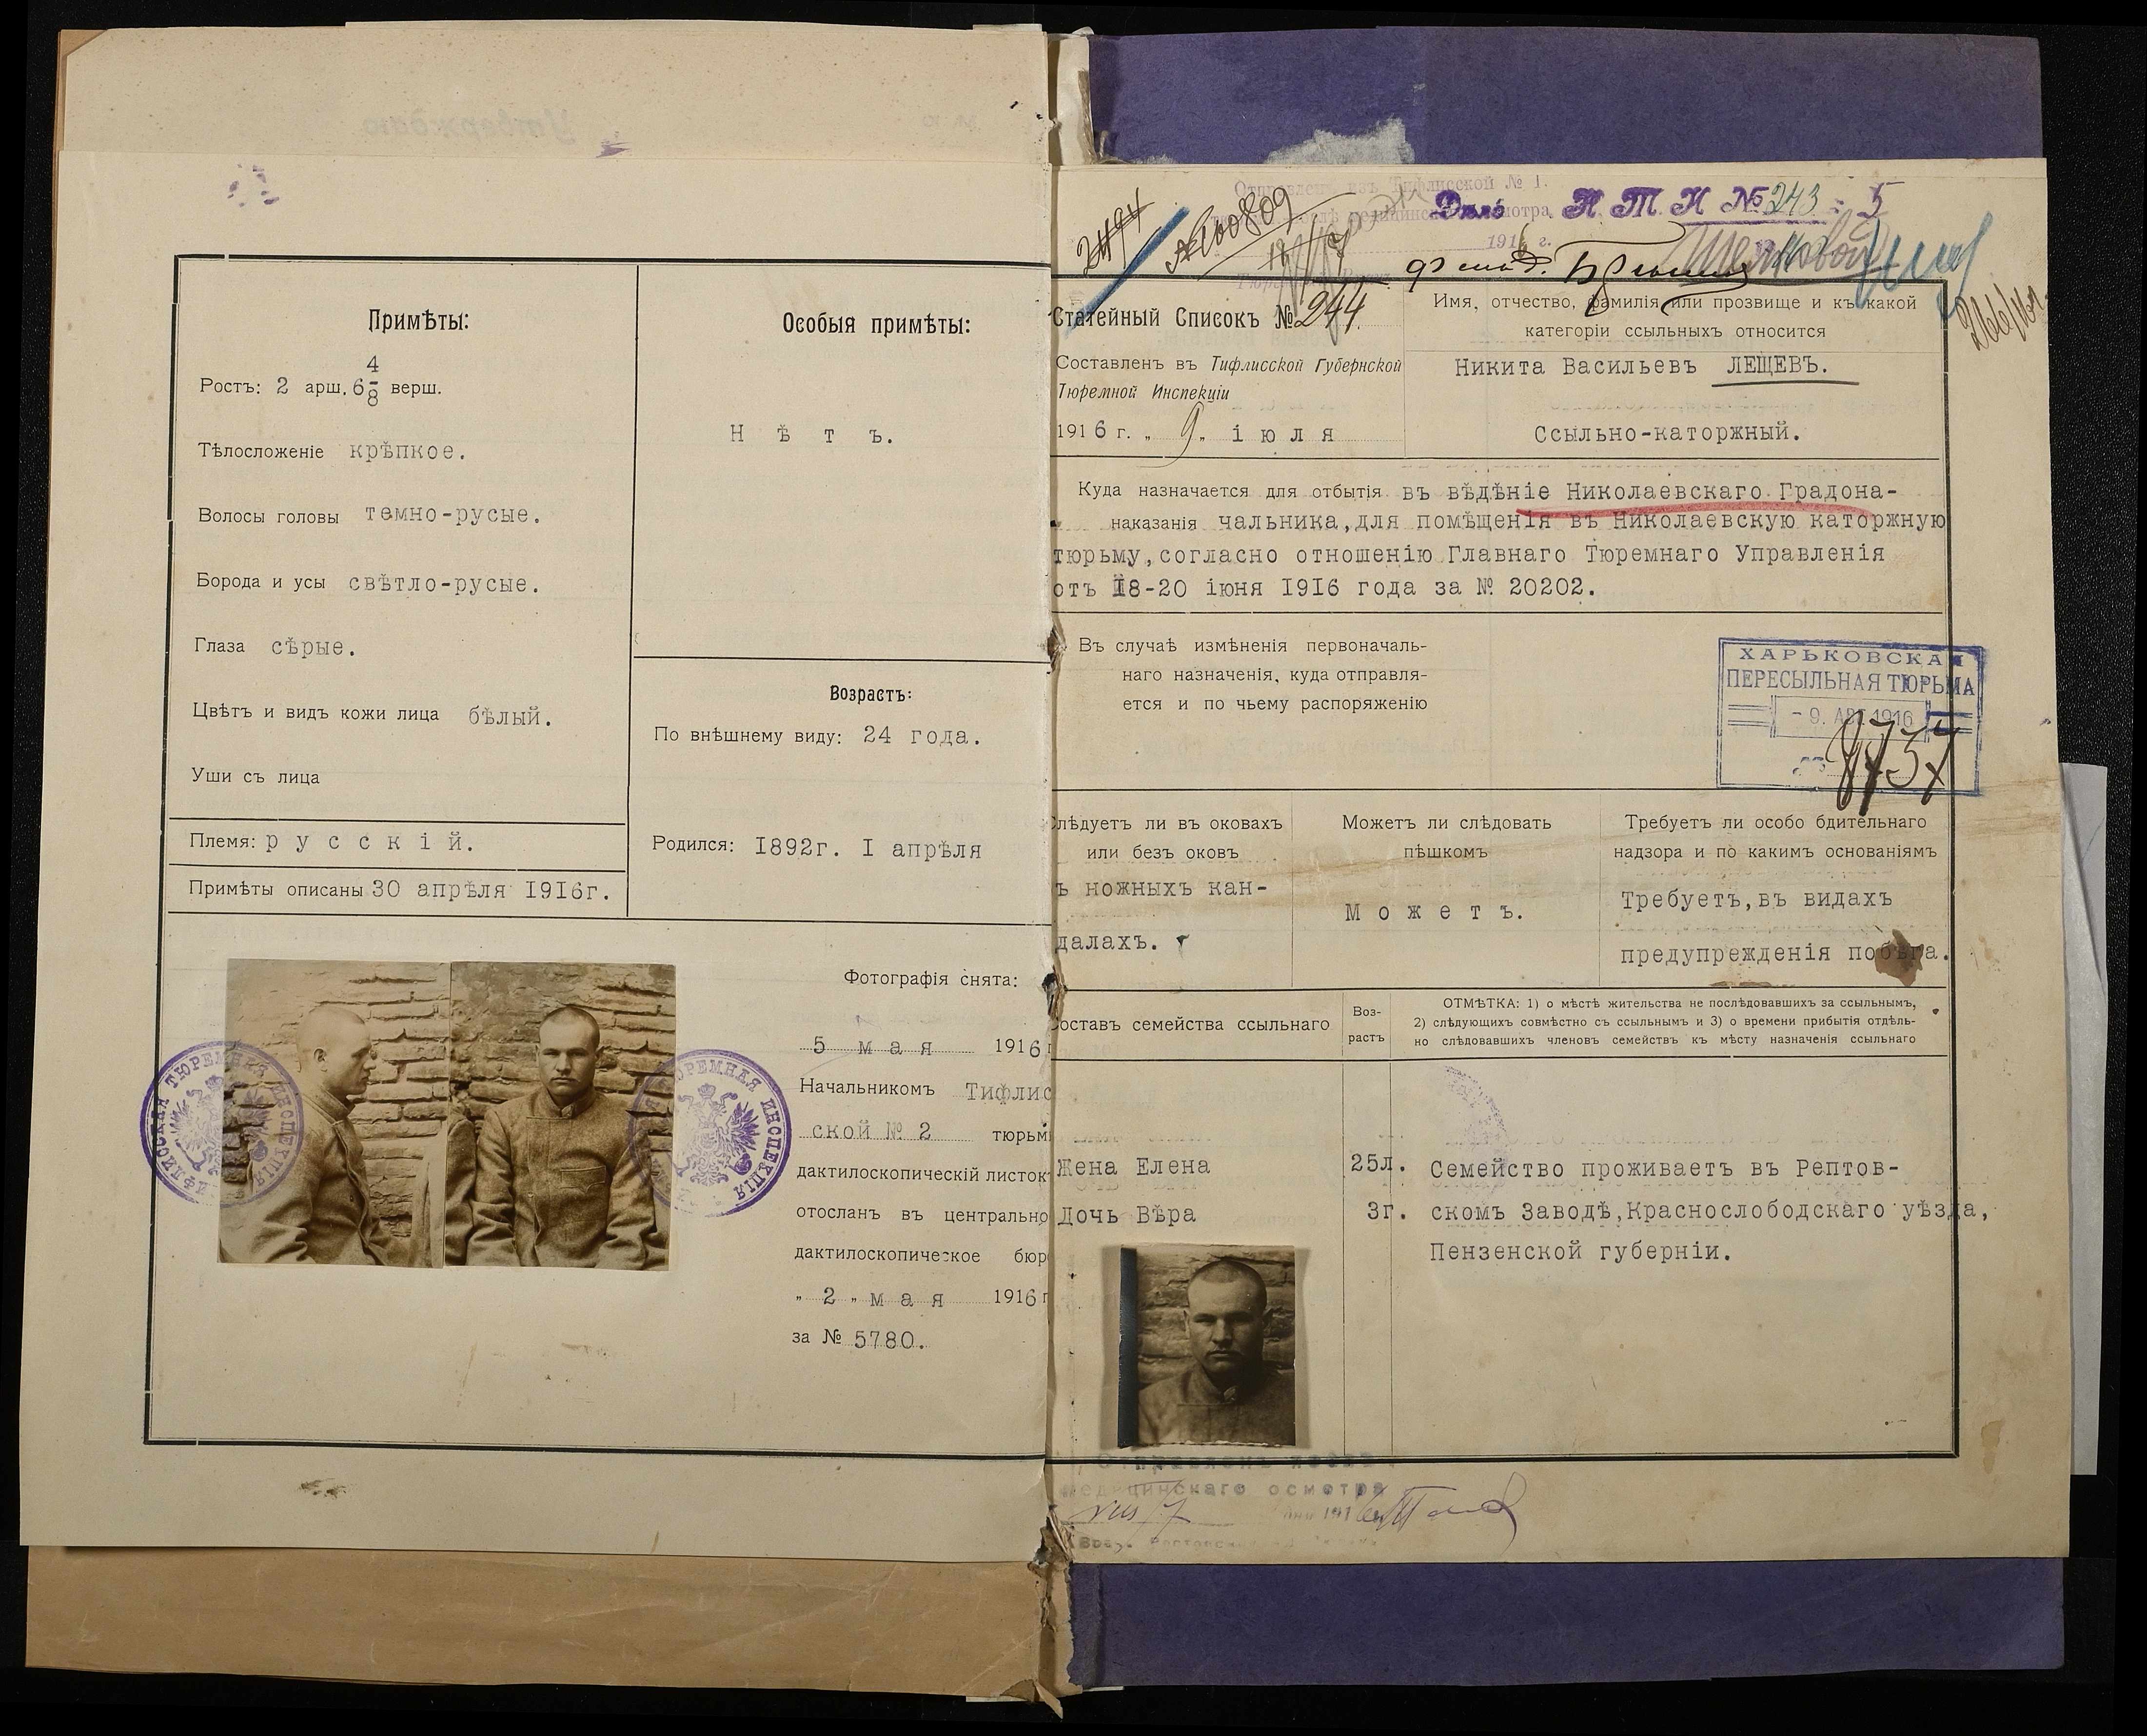 Примѣты:
4
Ростъ: 2 арш. 6 – верш.
8
Тѣлосложеніе крѣпкое.
Волосы головы темно-русые.
Борода и усы свѣтло-русые.
Глаза сѣрые.
Цвѣтъ и видъ кожи лица бѣлый.
Уши съ лица
Племя: русскій.
Примѣты описаны 30 апрѣля 1916г.
Особыя примѣты:
Нѣтъ.
Возрастъ:
По внѣшнему виду: 24 года.
Родился: 1892г. I апрѣля
Фотографія снята:
5 мая 1916 г
Начальникомъ Тифлис
ской № 2 тюрьм
дактилоскопическій листок
отосланъ въ центрально
дактилоскопическое бюр
„ 2 „ мая 1916 г
за № 5780.
ТЮРЕМНАЯ ИНСПЕКЦІЯ
2494
№100809
Дѣло Н Т К № 243 = 5
Статейный Списокъ № 244.
Составленъ въ Тифлисской Губернской
Тюремной Инспекціи
1916 г. „ 9 „ іюля
Имя, отчество, фамилія или прозвище и къ какой
категоріи ссыльныхъ относится
Никита Васильевъ ЛЕЩЕВЪ.
Ссыльно-каторжный.
Куда назначается для отбытія въ вѣдѣніе Николаевскаго Градона-
наказанія чальника, для помѣщенія въ Николаевскую каторжную
тюрьму, согласно отношенію Главнаго Тюремнаго Управленія
отъ I8-20 іюня 1916 года за № 20202.
Въ случаѣ измѣненія первоначаль-
наго назначенія, куда отправля-
ется и по чьему распоряженію
ХАРЬКОВСКАЯ
ПЕРЕСЫЛЬНАЯ ТЮРЬМА
- 9. АВГ. 1916
Слѣдуетъ ли въ оковахъ
или безъ оковъ
ъ ножныхъ кан-
далахъ.
Можетъ ли слѣдовать
пѣшкомъ
Можетъ.
Требуетъ ли особо бдительнаго
надзора и по какимъ основаніямъ
Требуетъ, въ видахъ
предупрежденія побѣга.
Составъ семейства ссыльнаго
Воз-
растъ
ОТМѢТКА: 1) о мѣстѣ жительства не послѣдовавшихъ за ссыльнымъ,
2) слѣдующихъ совмѣстно съ ссыльнымъ и 3) о времени прибытія отдѣль-
но слѣдовавшихъ членовъ семействъ къ мѣсту назначенія ссыльнаго
Жена Елена 25л. Семейство проживаетъ въ Рептов-
Дочь Вѣра 3г. скомъ Заводѣ, Краснослободскаго уѣзда,
Пензенской губерніи.
медицинскаго осмотра